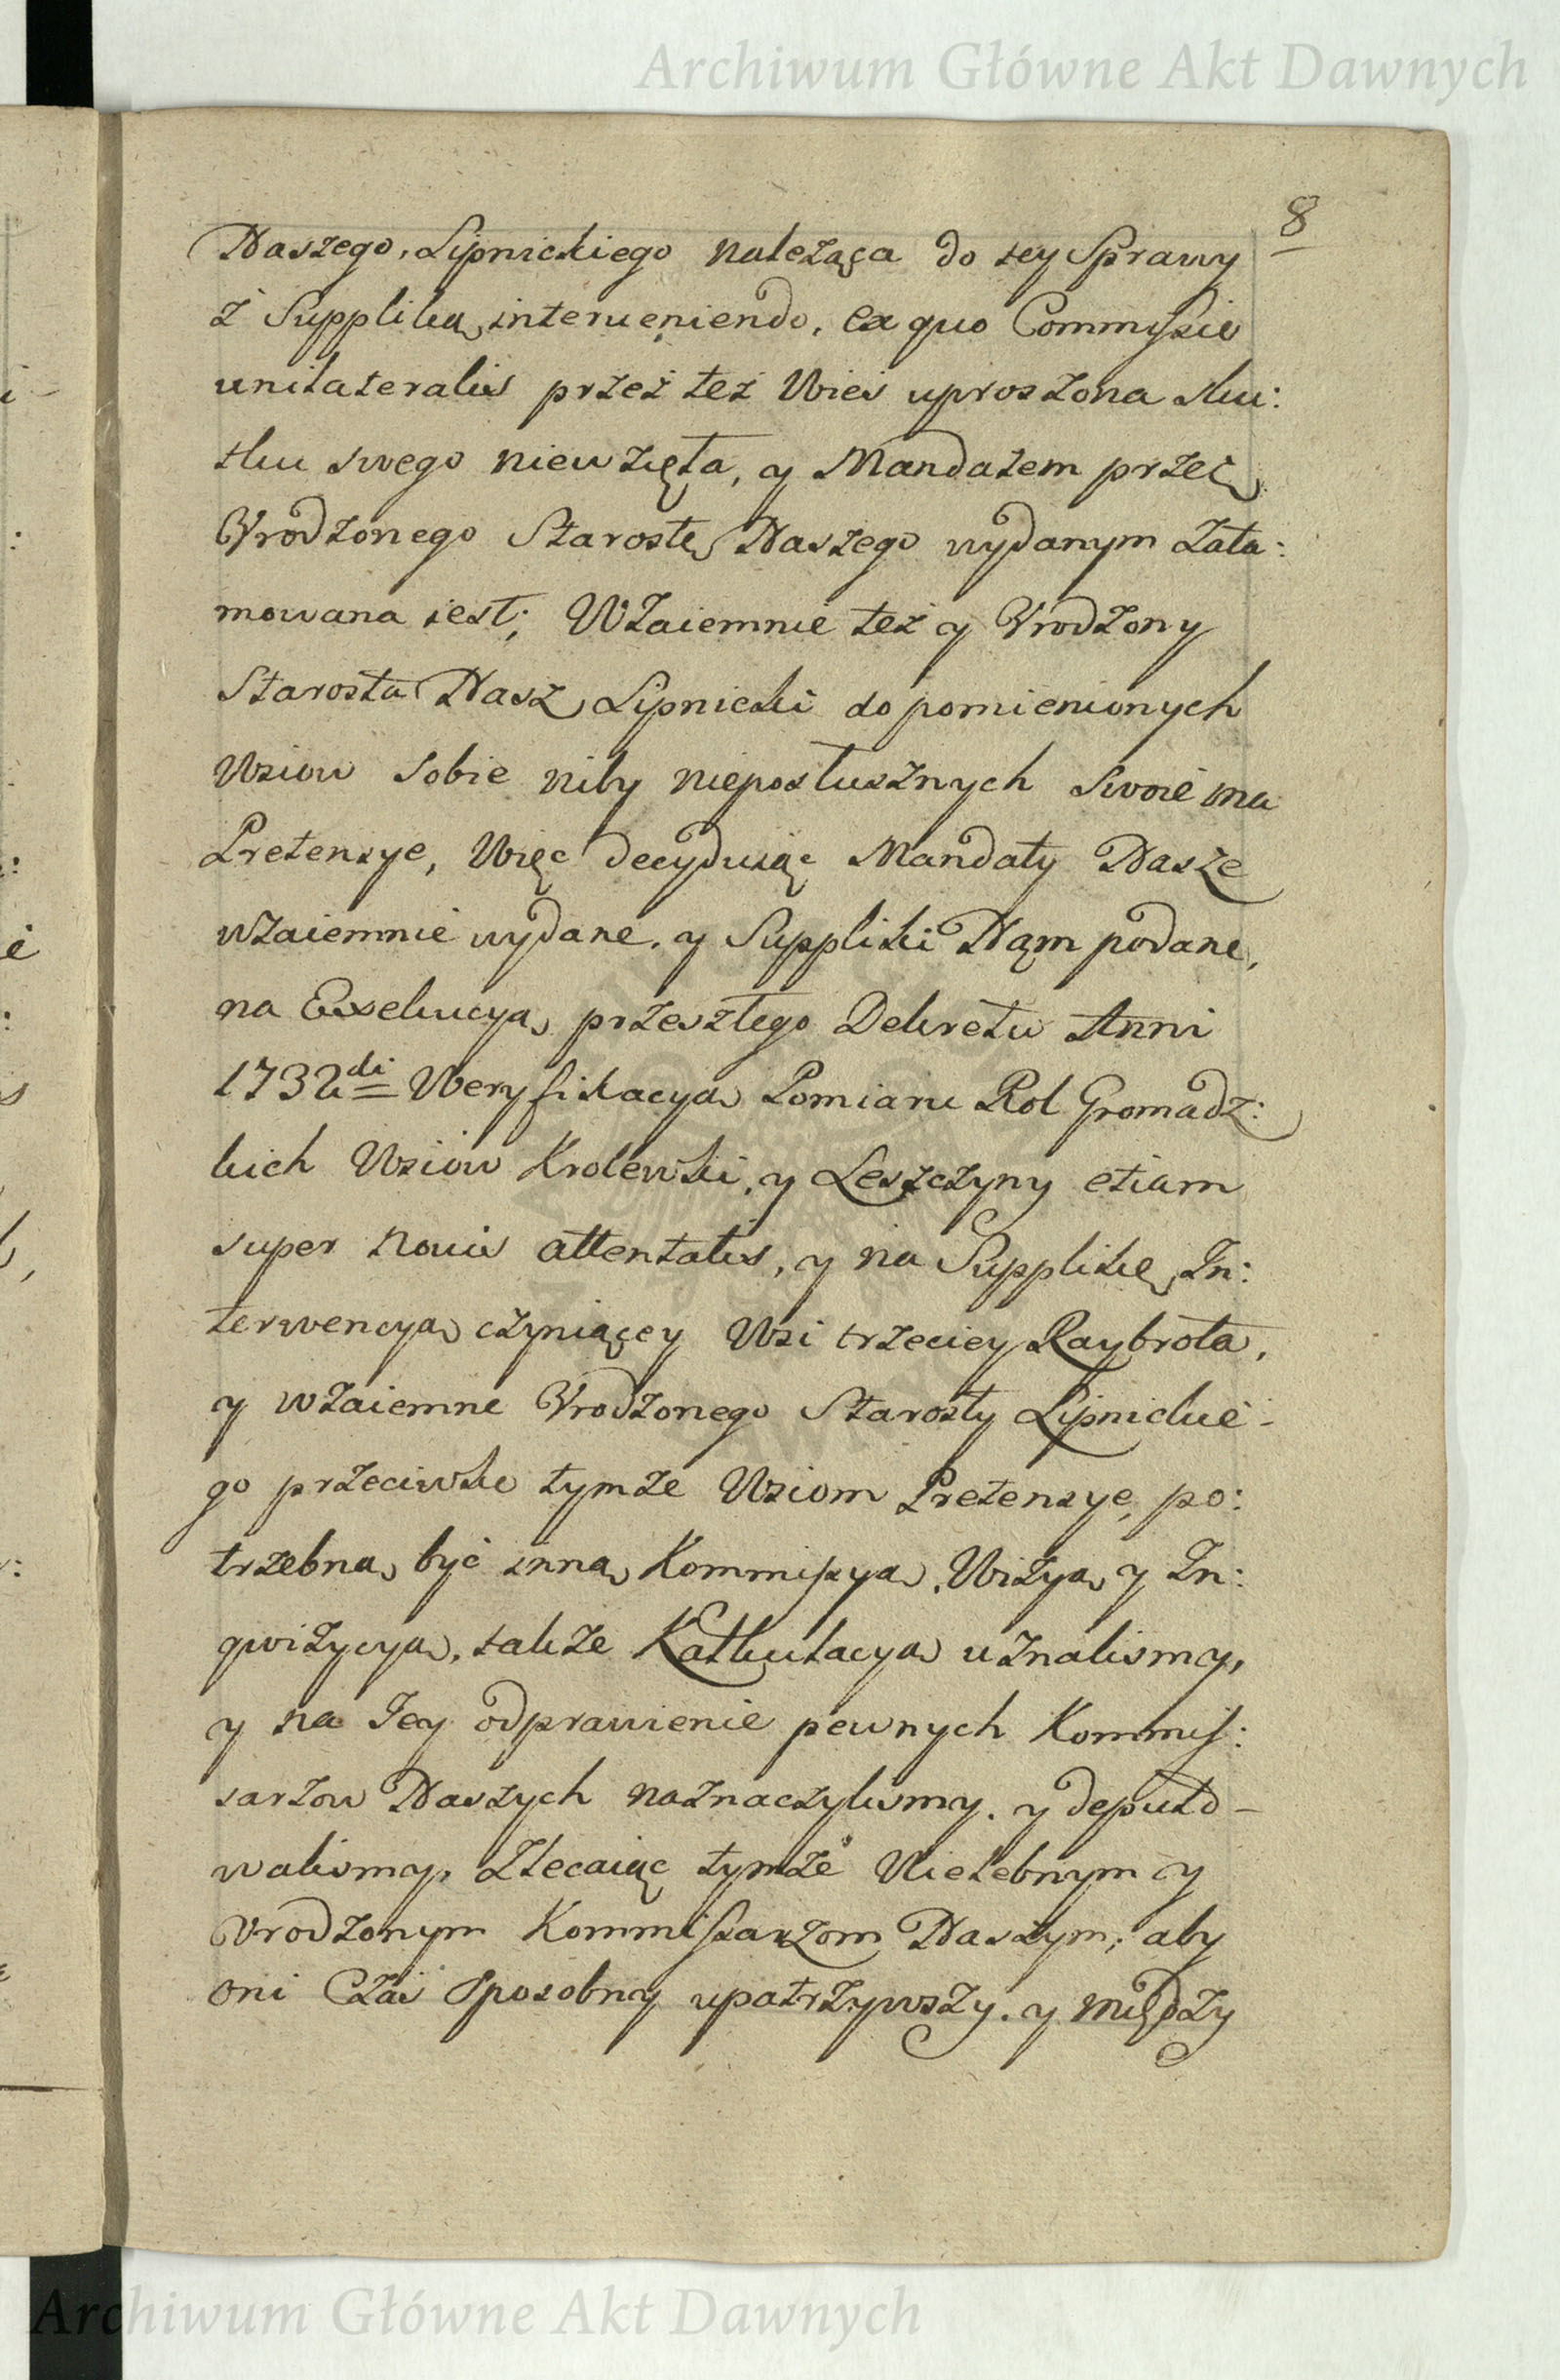 Archiwum Główne Akt Dawnych
8
Naszego, Lipnickiego należąca do tey Sprawy
z Suppliką interueniendo, ex quo Commissie
unilateralis przez też Wies uproszona sku:
tku swego niewzięła, y Mandatem przez
Urodzonego Starostę Naszego wydanym zata:
mowana iest; Wzaiemnie też y Urodzony
Starosta Nasz Lipnicki do pomienionych
Wsiow sobie niby nieposłusznych swoie ma
Pretensye, Więc decyduiąc Mandaty Nasze
wzaiemnie wydane. y Suppliki Nąm podane,
na Exekucyą przeszłego Dekretu Anni
1732di Weryfikacyą Pomiaru Rol Gromadz:
kich Wsiow Krolewki, y Leszczyny etiam
super nouis attentatis, y na Supplikę In:
terwencyą czyniącey Wsi trzeciey Raybrota,
y wzaiemne Urodzonego Starosty Lipnickie-
go przeciwko tymże Wsiom Pretensye, po:
trzebną być inną Kommissyą. Wizyą y In:
qwizycyą, także Kalkulacyą uznalismy,
y na Jey odprawienie pewnych Kommis:
sarzow Naszych naznaczylismy. y deputo-
walismy, Zlecaiąc tymże Wielebnym y
Urodzonym Kommissarzom Naszym; aby
oni Czas sposobny upatrzywszy. y między
Archiwum Główne Akt Dawnych